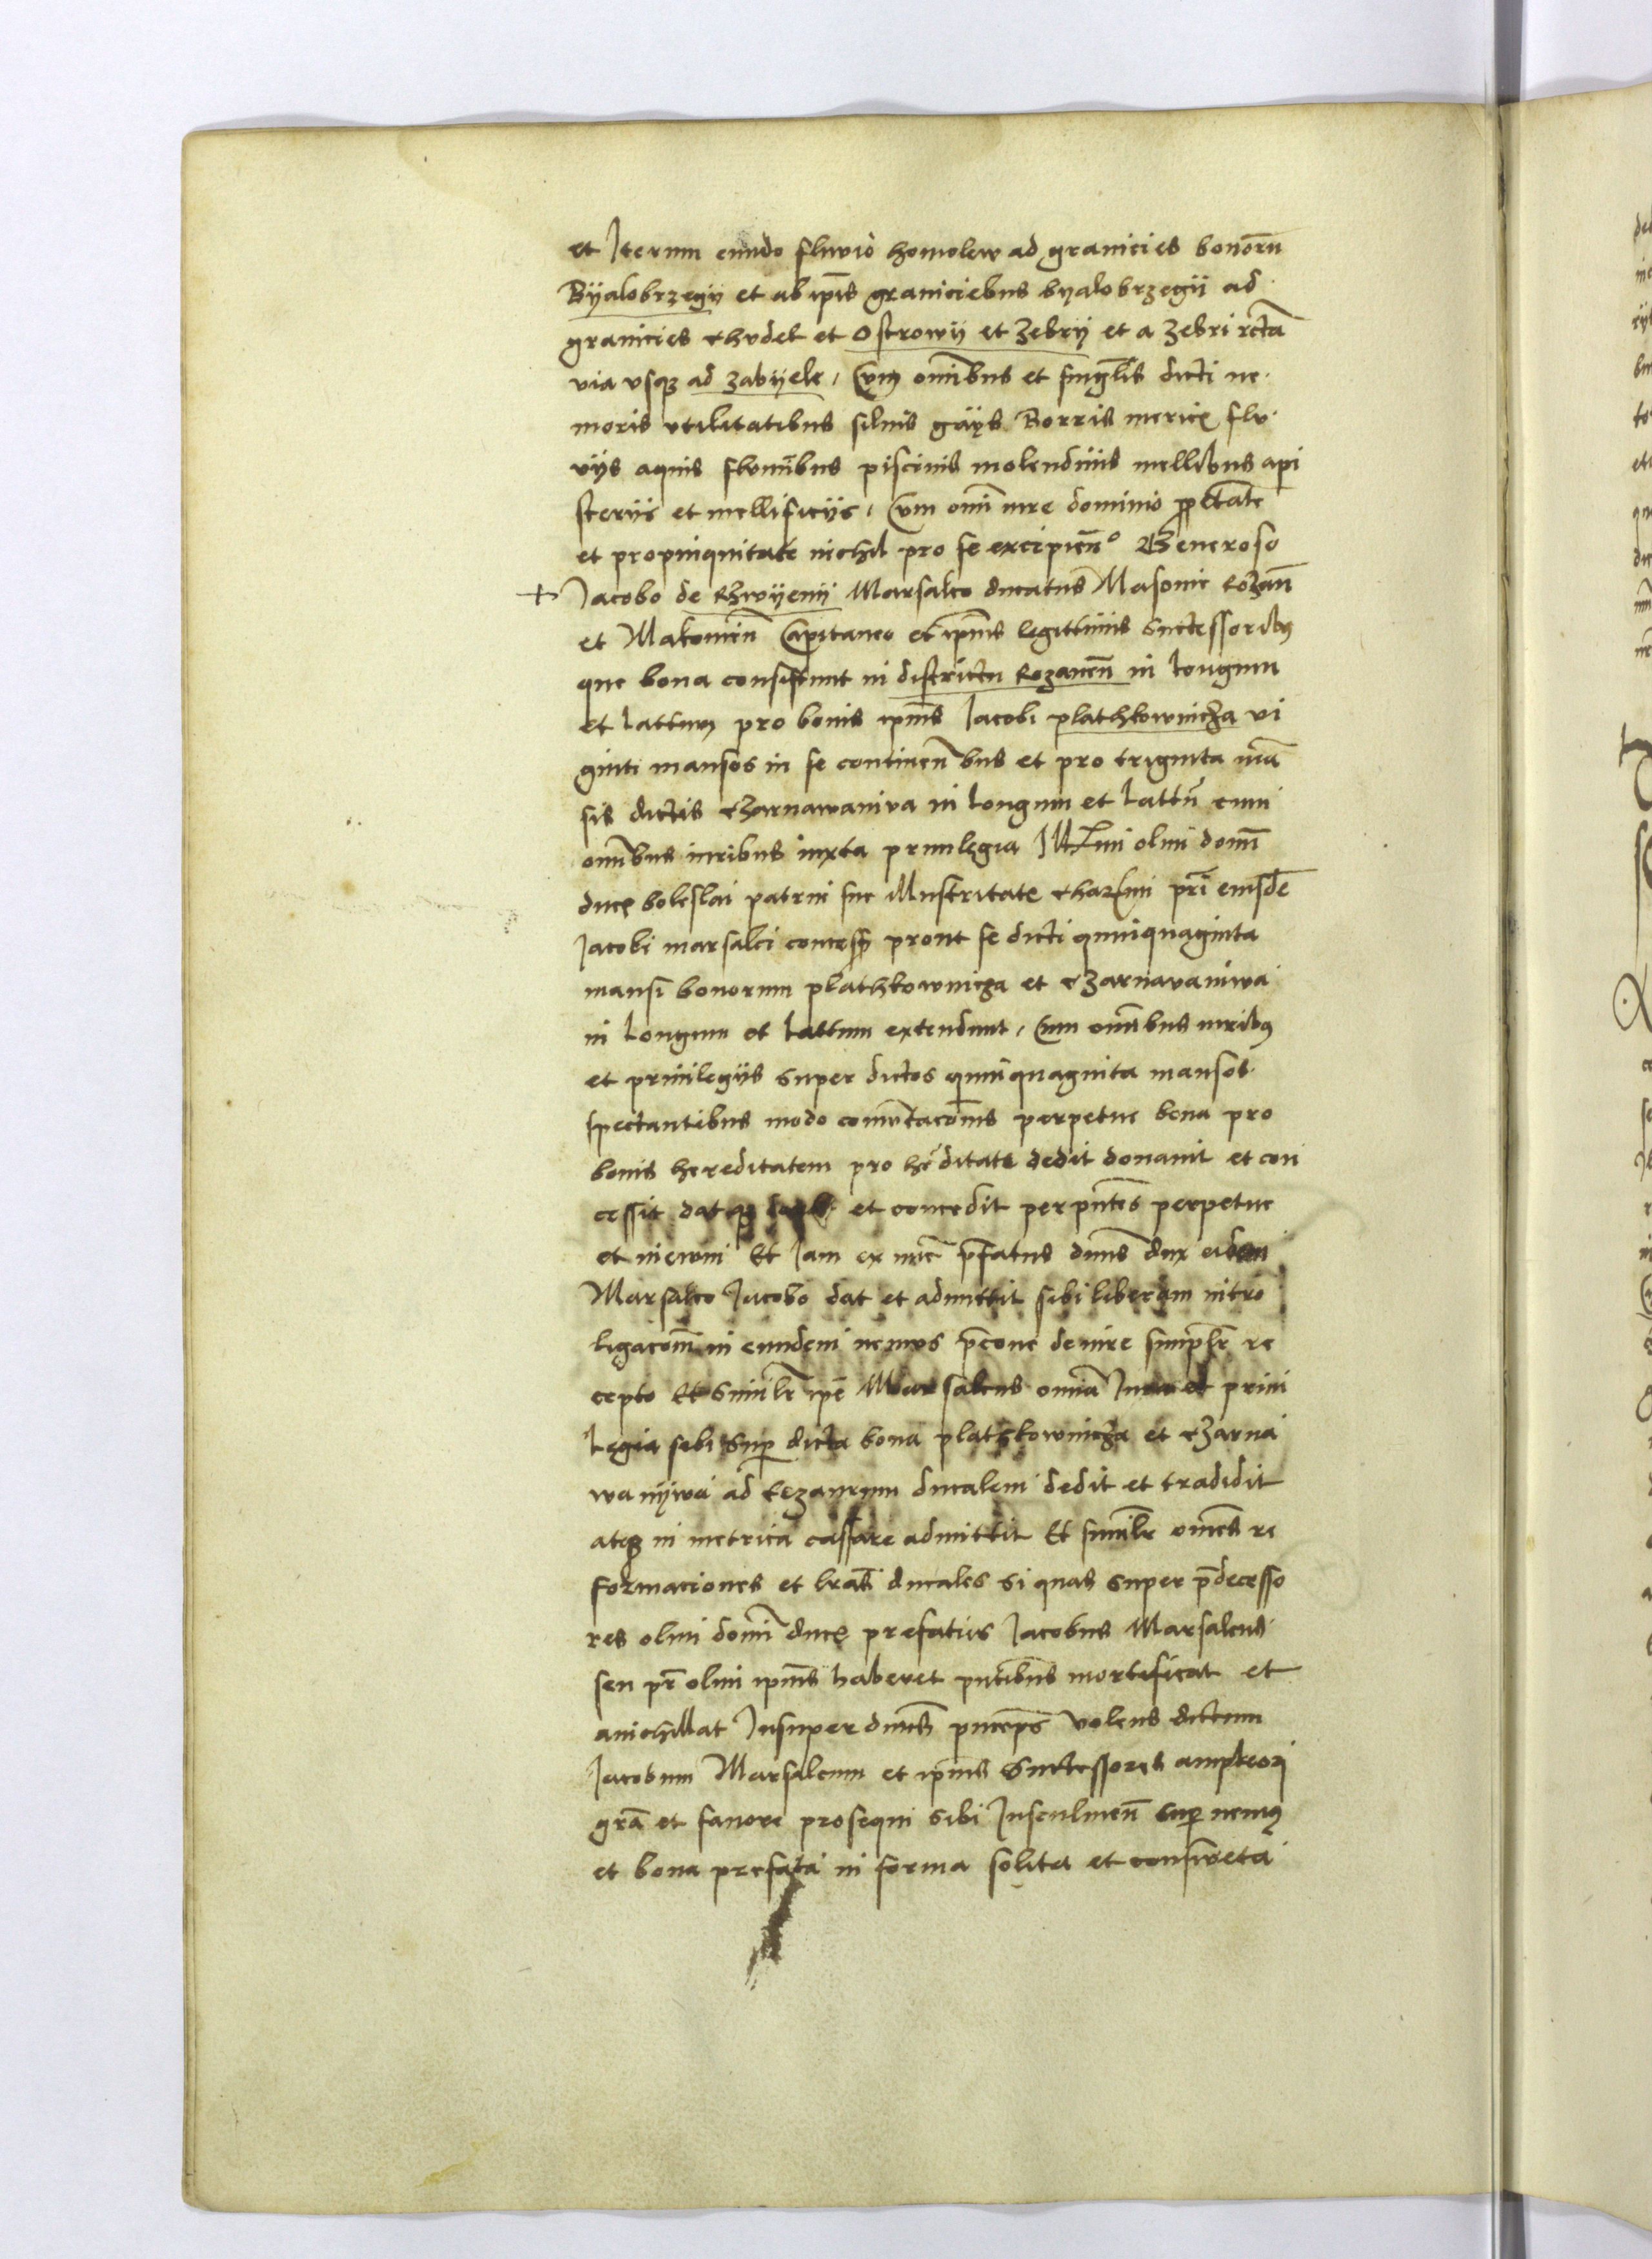 et Iterum eundo fluvio homolew ad granicies bonorū
Byalobrzegij et ab ip̄is graniciebus byalobrzegij ad
granicies chudek et Ostrowij et Zebrij et a Zebri rectā
via vsq̄ ad zabyele, Cum om̄ibus et singl̄is dicti ne
moris vtilitatibus siluis gays Borris mericis flu
vijs aquis flum̄ibus piscinis molendinis mellibus api
sterijs et mellificijs, Cum om̄i iure dominio pp̄etate
et propinquitate nichil pro se excipien̄º Generoso
+ Jacobo de Rzwyenij Marsalco ducatus Masouie Rozan̄
et Makouien̄ Capitaneo et ip̄ius legittimis successoribus
que bona consistunt in districtu Rozanen̄ in longum
et lattum pro bonis ip̄ius Iacobi plathkownicza vi
ginti mansos in se continen̄bus et pro triginta mā
sis dictis Czarnawaniva in longum et lattū cum
om̄ibus iuribus iuxta priuilegia Ill̄imi olim domī
ducis boleslai patrui sue illustritate charīmi pr̄i eiusdē
Jacobi marsalci concess̄ prout se dicti quinquaginta
mansi bonorum plathkownicza et Czarnavaniwa
in longum et lattum extendunt, Cum om̄ibus iuribus
et priuilegijs super dictos quinquaginta mansos
spectantibus modo com̄utacōnis perpetue bona pro
bonis hereditatem pro hēditate dedit donauit et con
cessit datq̄ et concedit per pn̄tes perpetue
et in ewm Et Iam ex nūc p̄fatus dn̄us dux eidem
Marsalco Jacobo dat et admittit sibi liberam intro
ligacōm in eundem nemus p̄cone de iure simpl̄r re
cepto Et simil̄r ip̄e Marsalcus om̄ia Iura et priui
legia sibi sup̄ dicta bona plathkownicza et Czarna
wanywa ad tezaurum ducalem dedit et tradidit
atq̄ in metrica cassare admittit Et simil̄r om̄es re
formaciones et lrās ducales si quas super p̄decesso
res olim domī ducis prefatus Jacobus Marsalcus
seu pr̄ olim ip̄ius haberet pn̄tibus mortificat et
anichillat Insuper dn̄us princeps volens dictum
Jacobum Marsalcum et ip̄ius Successores ampliori
grā et fauore prosequi sibi Insculmen̄ sup̄ nemus
et bona prefata in forma solita et consweta